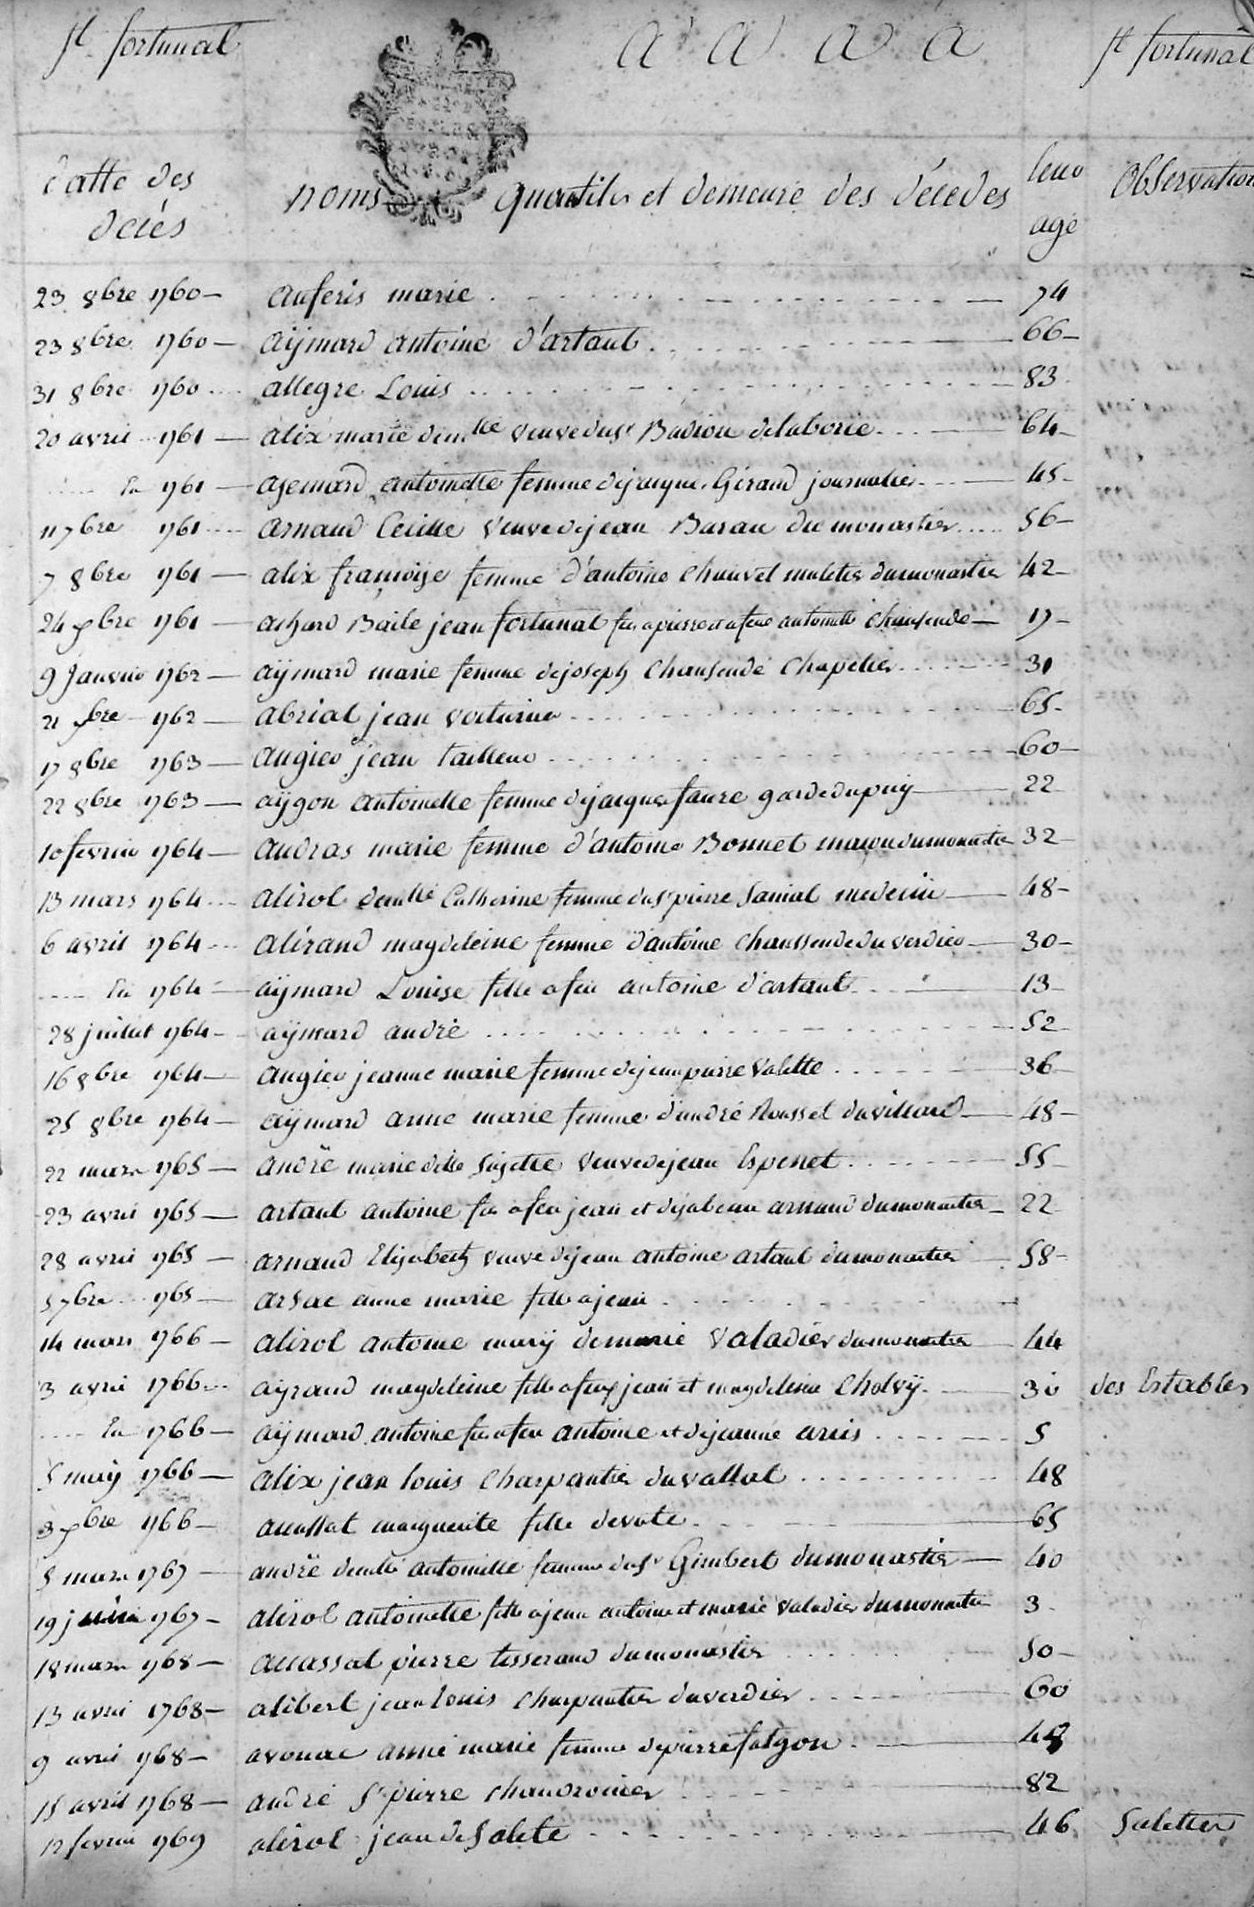 St fortunat a a a a St fortunat
datte des noms qualités et demeure des décedes leur Observation
décés age
23 8bre 1760 auferis marie 74
23 8bre 1760 aÿmard antoine d'artaut 66
31 8bre 1760 allegre Louis 83
20 avril 1761 alix marie demlle veuve du sr Badiou delaborie 64
Du 1761 ajemard antoinette femme dejacque Gérand journalier 45
11 7bre 1761 arnaud Cecille veuve dejean Barau du monastier 56
7 8bre 1761 alix françoise femme d'antoine chauvet muletier dumonastier 42
24 xbre 1761 achard Baile jean fortunat fils a pierre et a feue antoinette chaussende 17
9 Janvier 1762 aÿmard marie femme dejoseph chaussende chapelier 31
21 xbre 1762 abrial jean voiturier 65
17 8bre 1763 augier jean tailleur 60
22 8bre 1763 aÿgon antoinette femme dejacques faure garde dupuy 22
10 fevrier 1764 audras marie femme d'antoine Bonnet maçon dumonastier 32
13 mars 1764 alirol demlle Catherine femme du sr pierre Sanial medecin 48
6 avril 1764 alirand magdeleine femme d'antoine chaussende du verdier 30
Du 1764 aÿmard Louise fille a feu antoine d'artaut 13
28 juillet 1764 aÿmard andré 52
16 8bre 1764 augier jeanne marie femme dejean pierre Valette 36
25 8bre 1764 aÿmard anne marie femme d'andré Roussel duvillard 48
22 mars 1765 andrë marie dite Sujette veuve dejean Espenet 55
23 avril 1765 artaut antoine fils a feu jean et disabeau arnaud dumonastier 22
28 avril 1765 arnaud Elisabeth veuve dejean antoine artaut dumonastier 58
5 7bre 1765 arsac anne marie fille a jean
14 mars 1766 alirol antoine mary demarie Valadier dumonastier 44
3 avril 1766 ayraud magdeleine fille a feu jean et magdeleine Cholvÿ 30 des Estables
Du 1766 aÿmard antoine fils a feu antoine et dejeanne arcis 5
5 maÿ 1766 alix jean louis Charpantier du vallat 48
3 xbre 1766 auassat marguerite fille devote 65
5 mars 1767 andrë demlle antoinette femme du sr Gimbert dumonastier 40
19 juin 1767 alirol antoinette fille a jean antoine et marie Valadier dumonastier 3
18 mars 1768 auassat pierre tisserand dumonastier 50
13 avril 1768 alibert jean louis charpantier duverdier 60
9 avril 1768 avouac anne marie femme depierre falgon 48
15 avril 1768 andré St pierre chaudronier 82
12 fevrier 1769 alirol jean de Salete 46 Salettes